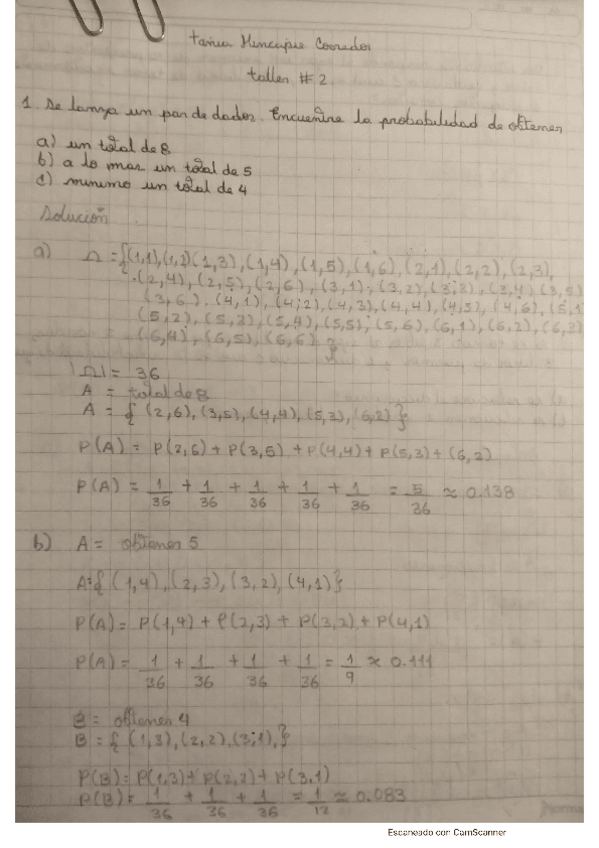 Tania Hincapie Corredor
taller # 2
1. Se lanza un par de dados. Encuentre la probabilidad de obtener
a) un total de 8
b) a lo mas un total de 5
c) minimo un total de 4
Solución
a) Ω = {(1,1),(1,2)(1,3),(1,4),(1,5),(1,6),(2,1),(2,2),(2,3),
(2,4),(2,5),(2,6),(3,1),(3,2),(3,3),(3,4)(3,5)
(3,6),(4,1),(4,2),(4,3),(4,4),(4,5),(4,6),(5,1)
(5,2),(5,3),(5,4),(5,5),(5,6),(6,1),(6,2),(6,3)
(6,4),(6,5),(6,6)}
|Ω| = 36
A = total de 8
A = { (2,6),(3,5),(4,4),(5,3),(6,2)}
P(A) = P(2,6) + P(3,5) + P(4,4) + P(5,3) + (6,2)
P(A) = 1/36 + 1/36 + 1/36 + 1/36 + 1/36 = 5/36 ≈ 0.138
b) A = obtener 5
A = { (1,4),(2,3),(3,2),(4,1)}
P(A) = P(1,4) + P(2,3) + P(3,2) + P(4,1)
P(A) = 1/36 + 1/36 + 1/36 + 1/36 = 1/9 ≈ 0.111
B = obtener 4
B = { (1,3),(2,2),(3,1),}
P(B) = P(1,3) + P(2,2) + P(3,1)
P(B) = 1/36 + 1/36 + 1/36 = 1/12 ≈ 0.083
Escaneado con CamScanner